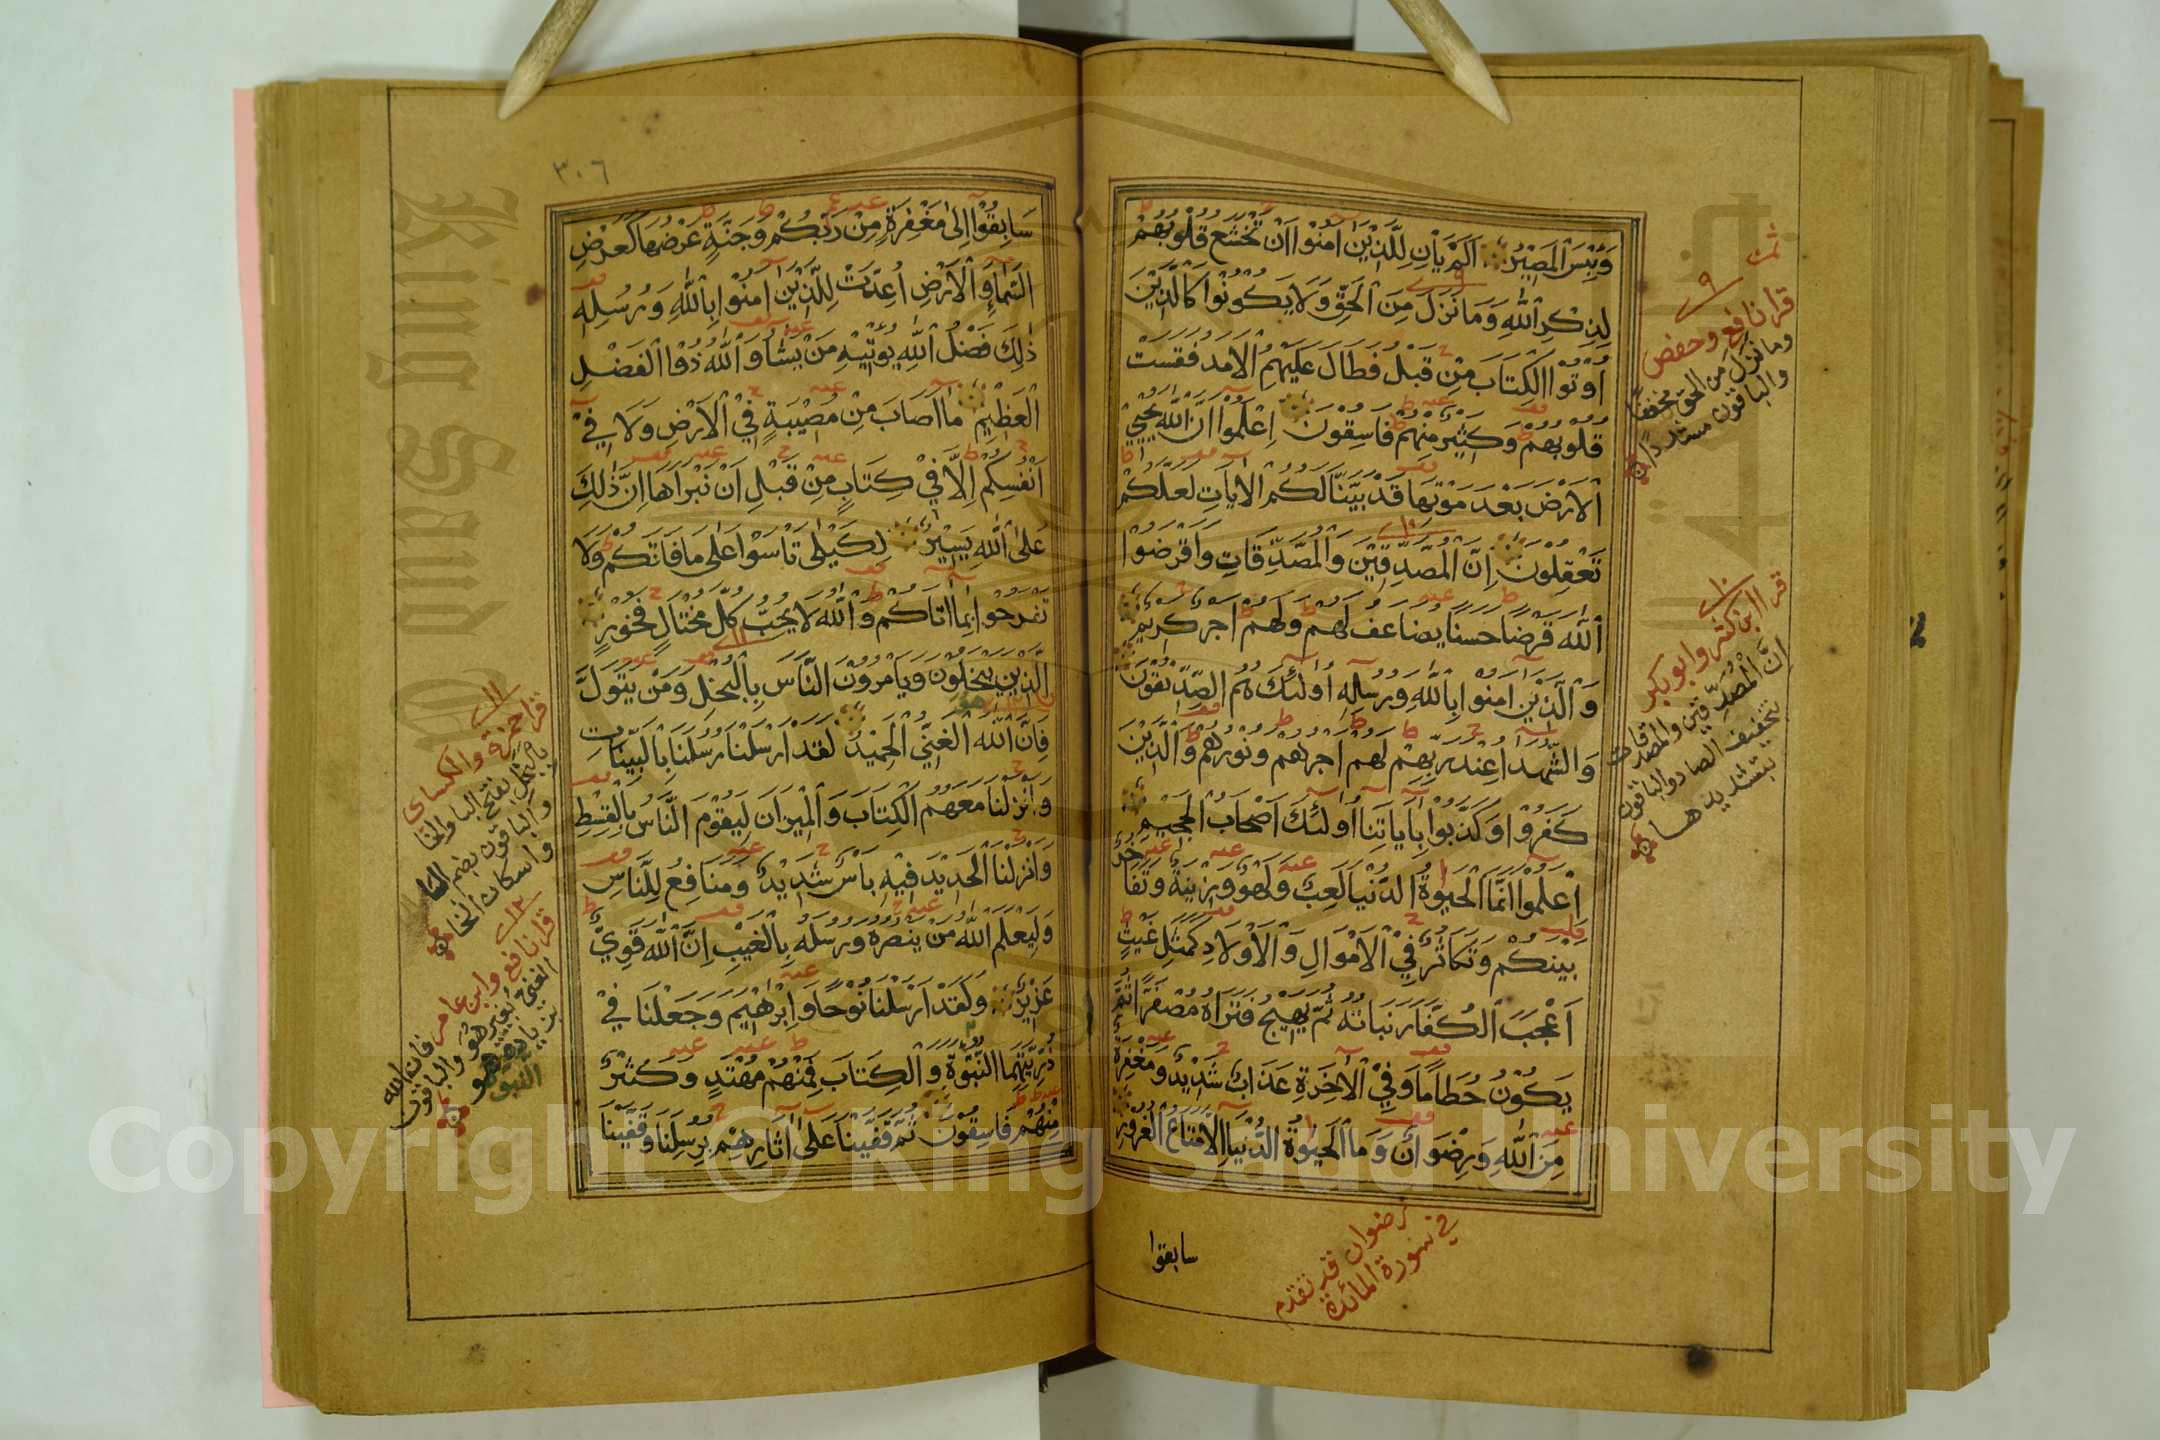 وَبِئْسَ الْمَصِيْرُ اَلَمْ يَاْنِ لِلَّذِيْنَ اٰمَنُوْا اَنْ تَخْشَعَ قُلُوْبُهُمْ
لِذِكْرِ اللّٰهِ وَمَا نَزَلَ مِنَ الْحَقِّ وَلَا يَكُوْنُوْا كَالَّذِيْنَ
اُوْتُوْا الْكِتَابَ مِنْ قَبْلُ فَطَالَ عَلَيْهِمُ الْاَمَدُ فَقَسَتْ
قُلُوْبُهُمْ وَكَثِيْرٌ مِنْهُمْ فَاسِقُوْنَ اِعْلَمُوْا اَنَّ اللّٰهَ يُحْيِي
الْاَرْضَ بَعْدَ مَوْتِهَا قَدْ بَيَّنَّا لَكُمُ الْاٰيَاتِ لَعَلَّكُمْ
تَعْقِلُوْنَ اِنَّ الْمُصَّدِّقِيْنَ وَالْمُصَّدِّقَاتِ وَاَقْرَضُوْا
اللّٰهَ قَرْضًا حَسَنًا يُضَاعَفُ لَهُمْ وَلَهُمْ اَجْرٌ كَرِيْمٌ
وَالَّذِيْنَ اٰمَنُوْا بِاللّٰهِ وَرُسُلِهٖ اُولٰئِكَ هُمُ الصِّدِّيْقُوْنَ
وَالشُّهَدَاءُ عِنْدَ رَبِّهِمْ لَهُمْ اَجْرُهُمْ وَنُوْرُهُمْ وَالَّذِيْنَ
كَفَرُوْا وَكَذَّبُوْا بِاٰيَاتِنَا اُولٰئِكَ اَصْحَابُ الْجَحِيْمِ
اِعْلَمُوْا اَنَّمَا الْحَيٰوةُ الدُّنْيَا لَعِبٌ وَلَهْوٌ وَزِيْنَةٌ وَتَفَاخُرٌ
بَيْنَكُمْ وَتَكَاثُرٌ فِي الْاَمْوَالِ وَالْاَوْلَادِ كَمَثَلِ غَيْثٍ
اَعْجَبَ الْكُفَّارَ نَبَاتُهٗ ثُمَّ يَهِيْجُ فَتَرَاهُ مُصْفَرًّا ثُمَّ
يَكُوْنُ حُطَامًا وَفِي الْاٰخِرَةِ عَذَابٌ شَدِيْدٌ وَمَغْفِرَةٌ
مِنَ اللّٰهِ وَرِضْوَانٌ وَمَا الْحَيٰوةُ الدُّنْيَا اِلَّا مَتَاعُ الْغُرُوْرِ
سابقوا
ثمن
٩
قرا نافع وحفص
وما نزل من الحق مخففا
والباقون مشددا
١٠
قرا ابن كثير وابو بكر
ان المصدقين والمصدقات
بتخفيف الصاد والباقون
بتشديدها
رضوان قد تقدم
في سورة المائدة
٣٠٦
سَابِقُوْا اِلٰى مَغْفِرَةٍ مِنْ رَبِّكُمْ وَجَنَّةٍ عَرْضُهَا كَعَرْضِ
السَّمَاءِ وَالْاَرْضِ اُعِدَّتْ لِلَّذِيْنَ اٰمَنُوْا بِاللّٰهِ وَرُسُلِهٖ
ذٰلِكَ فَضْلُ اللّٰهِ يُؤْتِيْهِ مَنْ يَشَاءُ وَاللّٰهُ ذُوا الْفَضْلِ
الْعَظِيْمِ مَا اَصَابَ مِنْ مُصِيْبَةٍ فِي الْاَرْضِ وَلَا فِيْ
اَنْفُسِكُمْ اِلَّا فِيْ كِتَابٍ مِنْ قَبْلِ اَنْ نَبْرَاَهَا اِنَّ ذٰلِكَ
عَلَى اللّٰهِ يَسِيْرٌ لِكَيْلٰى تَاْسَوْا عَلٰى مَا فَاتَكُمْ وَلَا
تَفْرَحُوْا بِمَا اٰتَاكُمْ وَاللّٰهُ لَا يُحِبُّ كُلَّ مُخْتَالٍ فَخُوْرٍ
الَّذِيْنَ يَبْخَلُوْنَ وَيَاْمُرُوْنَ النَّاسَ بِالْبُخْلِ وَمَنْ يَتَوَلَّ
فَاِنَّ اللّٰهَ الْغَنِيُّ الْحَمِيْدُ لَقَدْ اَرْسَلْنَا رُسُلَنَا بِالْبَيِّنَاتِ
وَاَنْزَلْنَا مَعَهُمُ الْكِتَابَ وَالْمِيْزَانَ لِيَقُوْمَ النَّاسُ بِالْقِسْطِ
وَاَنْزَلْنَا الْحَدِيْدَ فِيْهِ بَاْسٌ شَدِيْدٌ وَمَنَافِعُ لِلنَّاسِ
وَلِيَعْلَمَ اللّٰهُ مَنْ يَنْصُرُهٗ وَرُسُلَهٗ بِالْغَيْبِ اِنَّ اللّٰهَ قَوِيٌّ
عَزِيْزٌ وَلَقَدْ اَرْسَلْنَا نُوْحًا وَاِبْرٰهِيْمَ وَجَعَلْنَا فِيْ
ذُرِّيَّتِهِمَا النُّبُوَّةَ وَالْكِتَابَ فَمِنْهُمْ مُهْتَدٍ وَكَثِيْرٌ
مِنْهُمْ فَاسِقُوْنَ ثُمَّ قَفَّيْنَا عَلٰى اٰثَارِهِمْ بِرُسُلِنَا وَقَفَّيْنَا
١١
قرا حمزة والكساى
بالبخل بفتح البا والخا
والباقون بضم البا
واسكان الخا
١٢
قرا نافع وابن عامر فان الله
الغني بغير هو والباقون
بزيادة هو
النبوة
King Saud University
Copyright © King Saud University